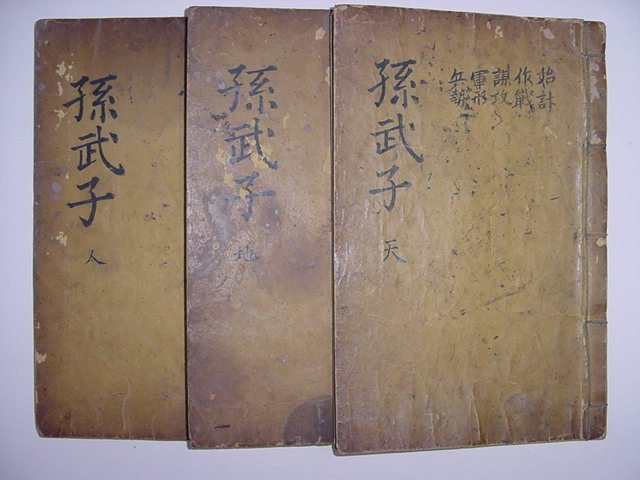 始計
作戰
謀攻
軍形
兵勢
孫武子
天
孫武子
地
孫武子
人